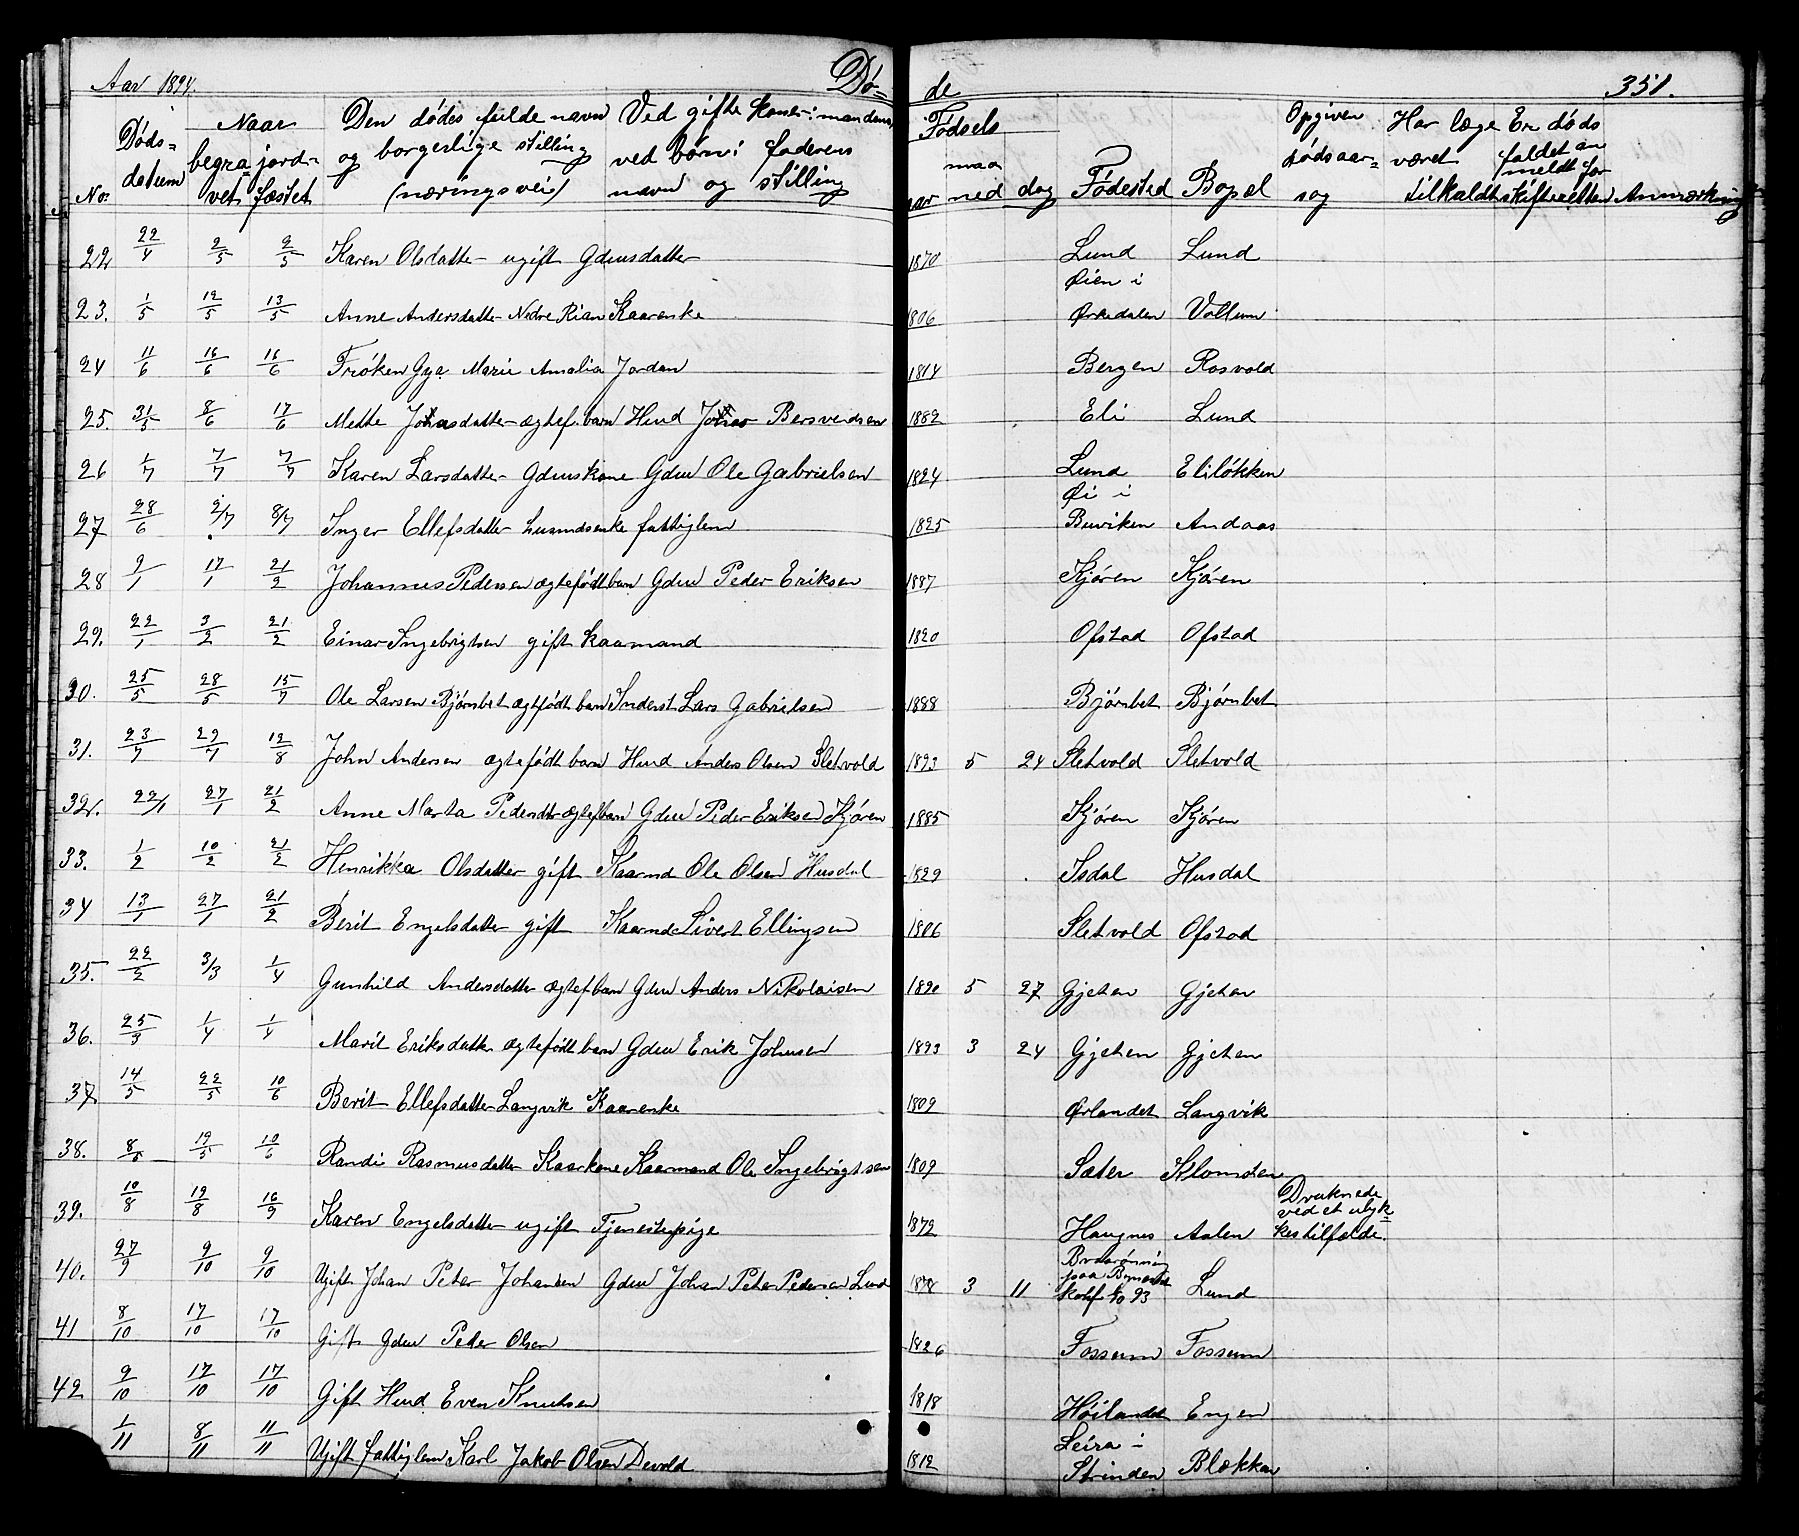 Aar 1894. Dø= de 351.
No. Døds= datum Naar begra= vet jord= fæstet Den dødes fulde navn og borgerlige stilling (næringsvei) Ved gifte koner: mandens ved børn: faderens navn og stilling Fødsels aar maa ned dag Fødested Bopæl Opgiven dødsaar= sag Har læge været tilkaldt Er døds faldet an meldt for skifteretten Anmærkning
22 22/4 2/5 2/5 Karen Olsdatter ugift Gdmsdatter 1870 Lund Lund
23. 1/5 12/5 13/5 Anne Andersdatter Nedre Rian Kaarenke 1806 Øien i Ørkedalen Vollum
24 11/6 16/6 16/6 Frøken Gya Marie Amalia Jordan 1814 Bergen Rosvold
25. 31/5 8/6 17/6 Mette Johnsdatter ægtef. barn Hmd Johan Bersvendsen 1882 Eli Lund
26 1/7 7/7 7/7 Karen Larsdatter Gdmskone Gdm Ole Gabrielsen 1824 Lund Eliløkken
27 28/6 2/7 8/7 Inger Ellefsdatter husmdsenke fattiglem 1825 Øi i Buviken Andaas
28 9/1 17/1 21/2 Johannes Pedersen ægtefødt barn Gdm Peder Eriksen 1887 Kjøren Kjøren
29. 22/1 3/2 21/2 Einar Ingebrigtsen gift kaarmand 1820 Ofstad Ofstad
30. 25/5 28/5 15/7 Ole Larsen Bjørnbet ægtefødt barn Inderst Lars Gabrielsen 1888 Bjørnbet Bjørnbet
31. 23/7 29/7 12/8 John Andersen ægtefødt barn Hmd Anders Olsen Sletvold 1893 5 24 Sletvold Sletvold
32. 22/1 27/1 21/2 Anne Marta Pedersdtr ægtef barn Gdm Peder Eriksen Kjøren 1885 Kjøren Kjøren
33. 1/2 10/2 21/2 Henrikka Olsdatter gift Kaarmd Ole Olsen Husdal 1829 Isdal Husdal
34 13/1 27/1 21/2 Berit Engelsdatter gift Kaarmd Sivert Ellingsen 1806 Sletvold Ofstad
35. 22/2 3/3 1/4 Gunhild Andersdatter ægtef barn Gdm Anders Nikolaisen 1890 5 27 Gjeten Gjeten
36. 25/3 1/4 1/4 Marit Eriksdatter ægtefødt barn Gdm Erik Johnsen 1893 3 24 Gjeten Gjeten
37 14/5 22/5 10/6 Berit Ellefsdatter Langvik Kaarenke 1809 Ørlandet Langvik
38. 8/5 19/5 10/6 Randi Rasmusdatter Kaarkone Kaarmand Ole Ingebrigtsen 1809 Sæter Klomsten
39. 10/8 19/8 16/9 Karen Engelsdatter ugift Tjenestepige 1872 Haugnes Aalen Druknede ved et ulyk= kestilfælde.
40. 27/9 9/10 9/10 Ugift Johan Peter Johansen Gdm Johan Peter Pedersen Lund 1878 3 11 Lund
41 8/10 17/10 17/10 Gift Gdm Peter Olsen 1826 Fossum Fossum
42 9/10 17/10 17/10 Gift Hmd Even Knutsen 1818 Høilandet Engen
1/11 8/11 11/11 Ugift fattiglem Karl Jakob Olsen Devold 1812 Leira i Strinden Blekkan